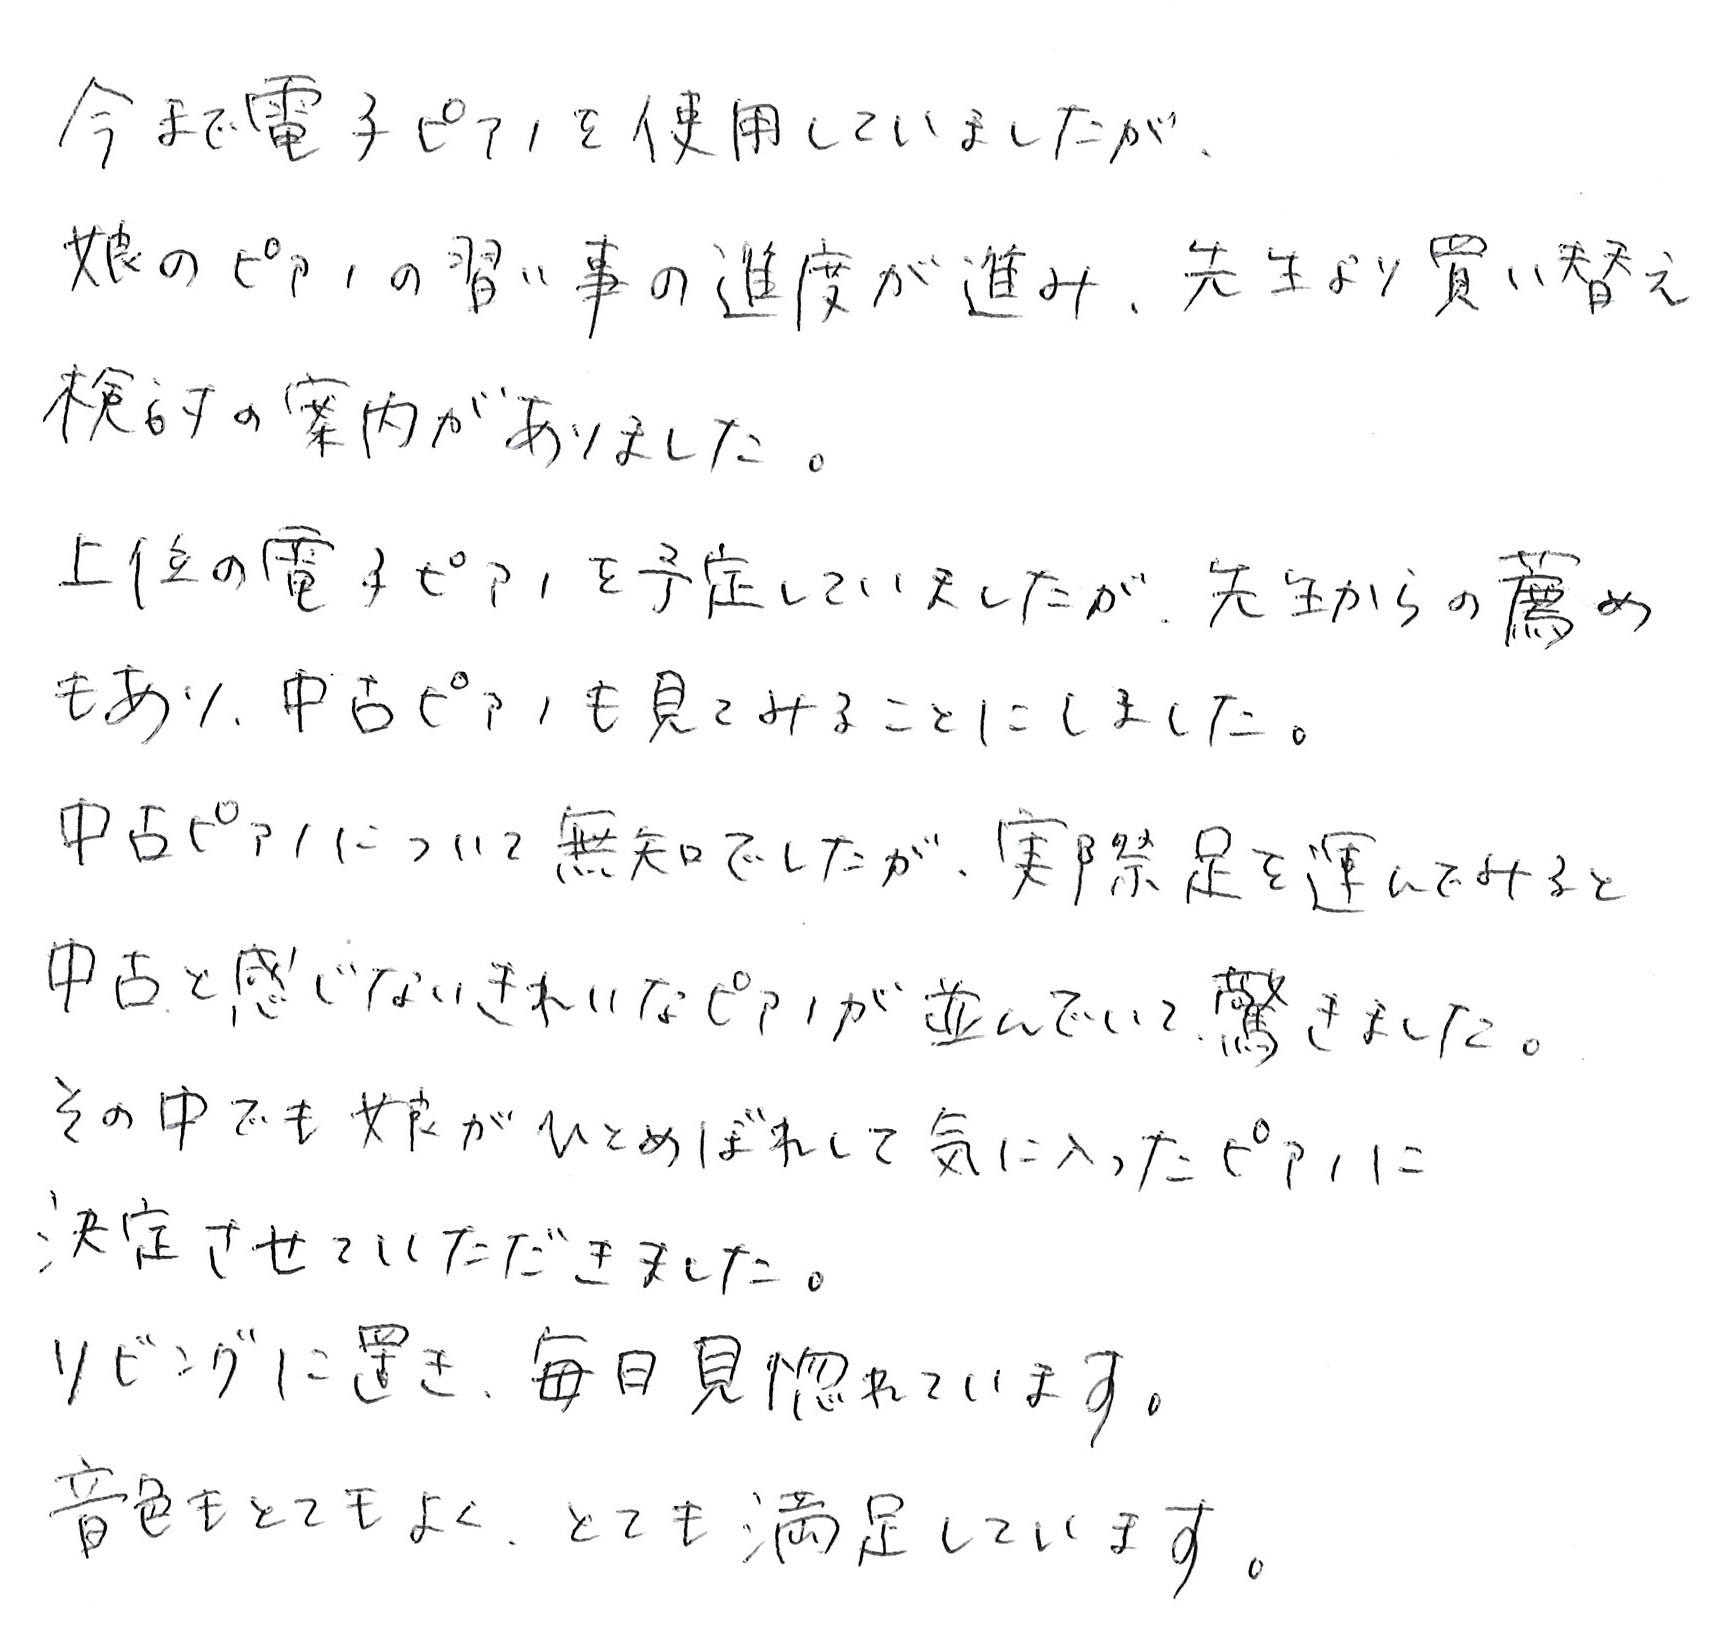 今まで電子ピアノを使用していましたが、
娘のピアノの習い事の進度が進み、先生より買い替え
検討の案内がありました。
上位の電子ピアノを予定していましたが、先生からの薦め
もあり、中古ピアノも見てみることにしました。
中古ピアノについて無知でしたが、実際足を運んでみると
中古と感じないきれいなピアノが並んでいて、驚きました。
その中でも娘がひとめぼれして気に入ったピアノに
決定させていただきました。
リビングに置き、毎日見惚れています。
音色もとてもよく、とても満足しています。